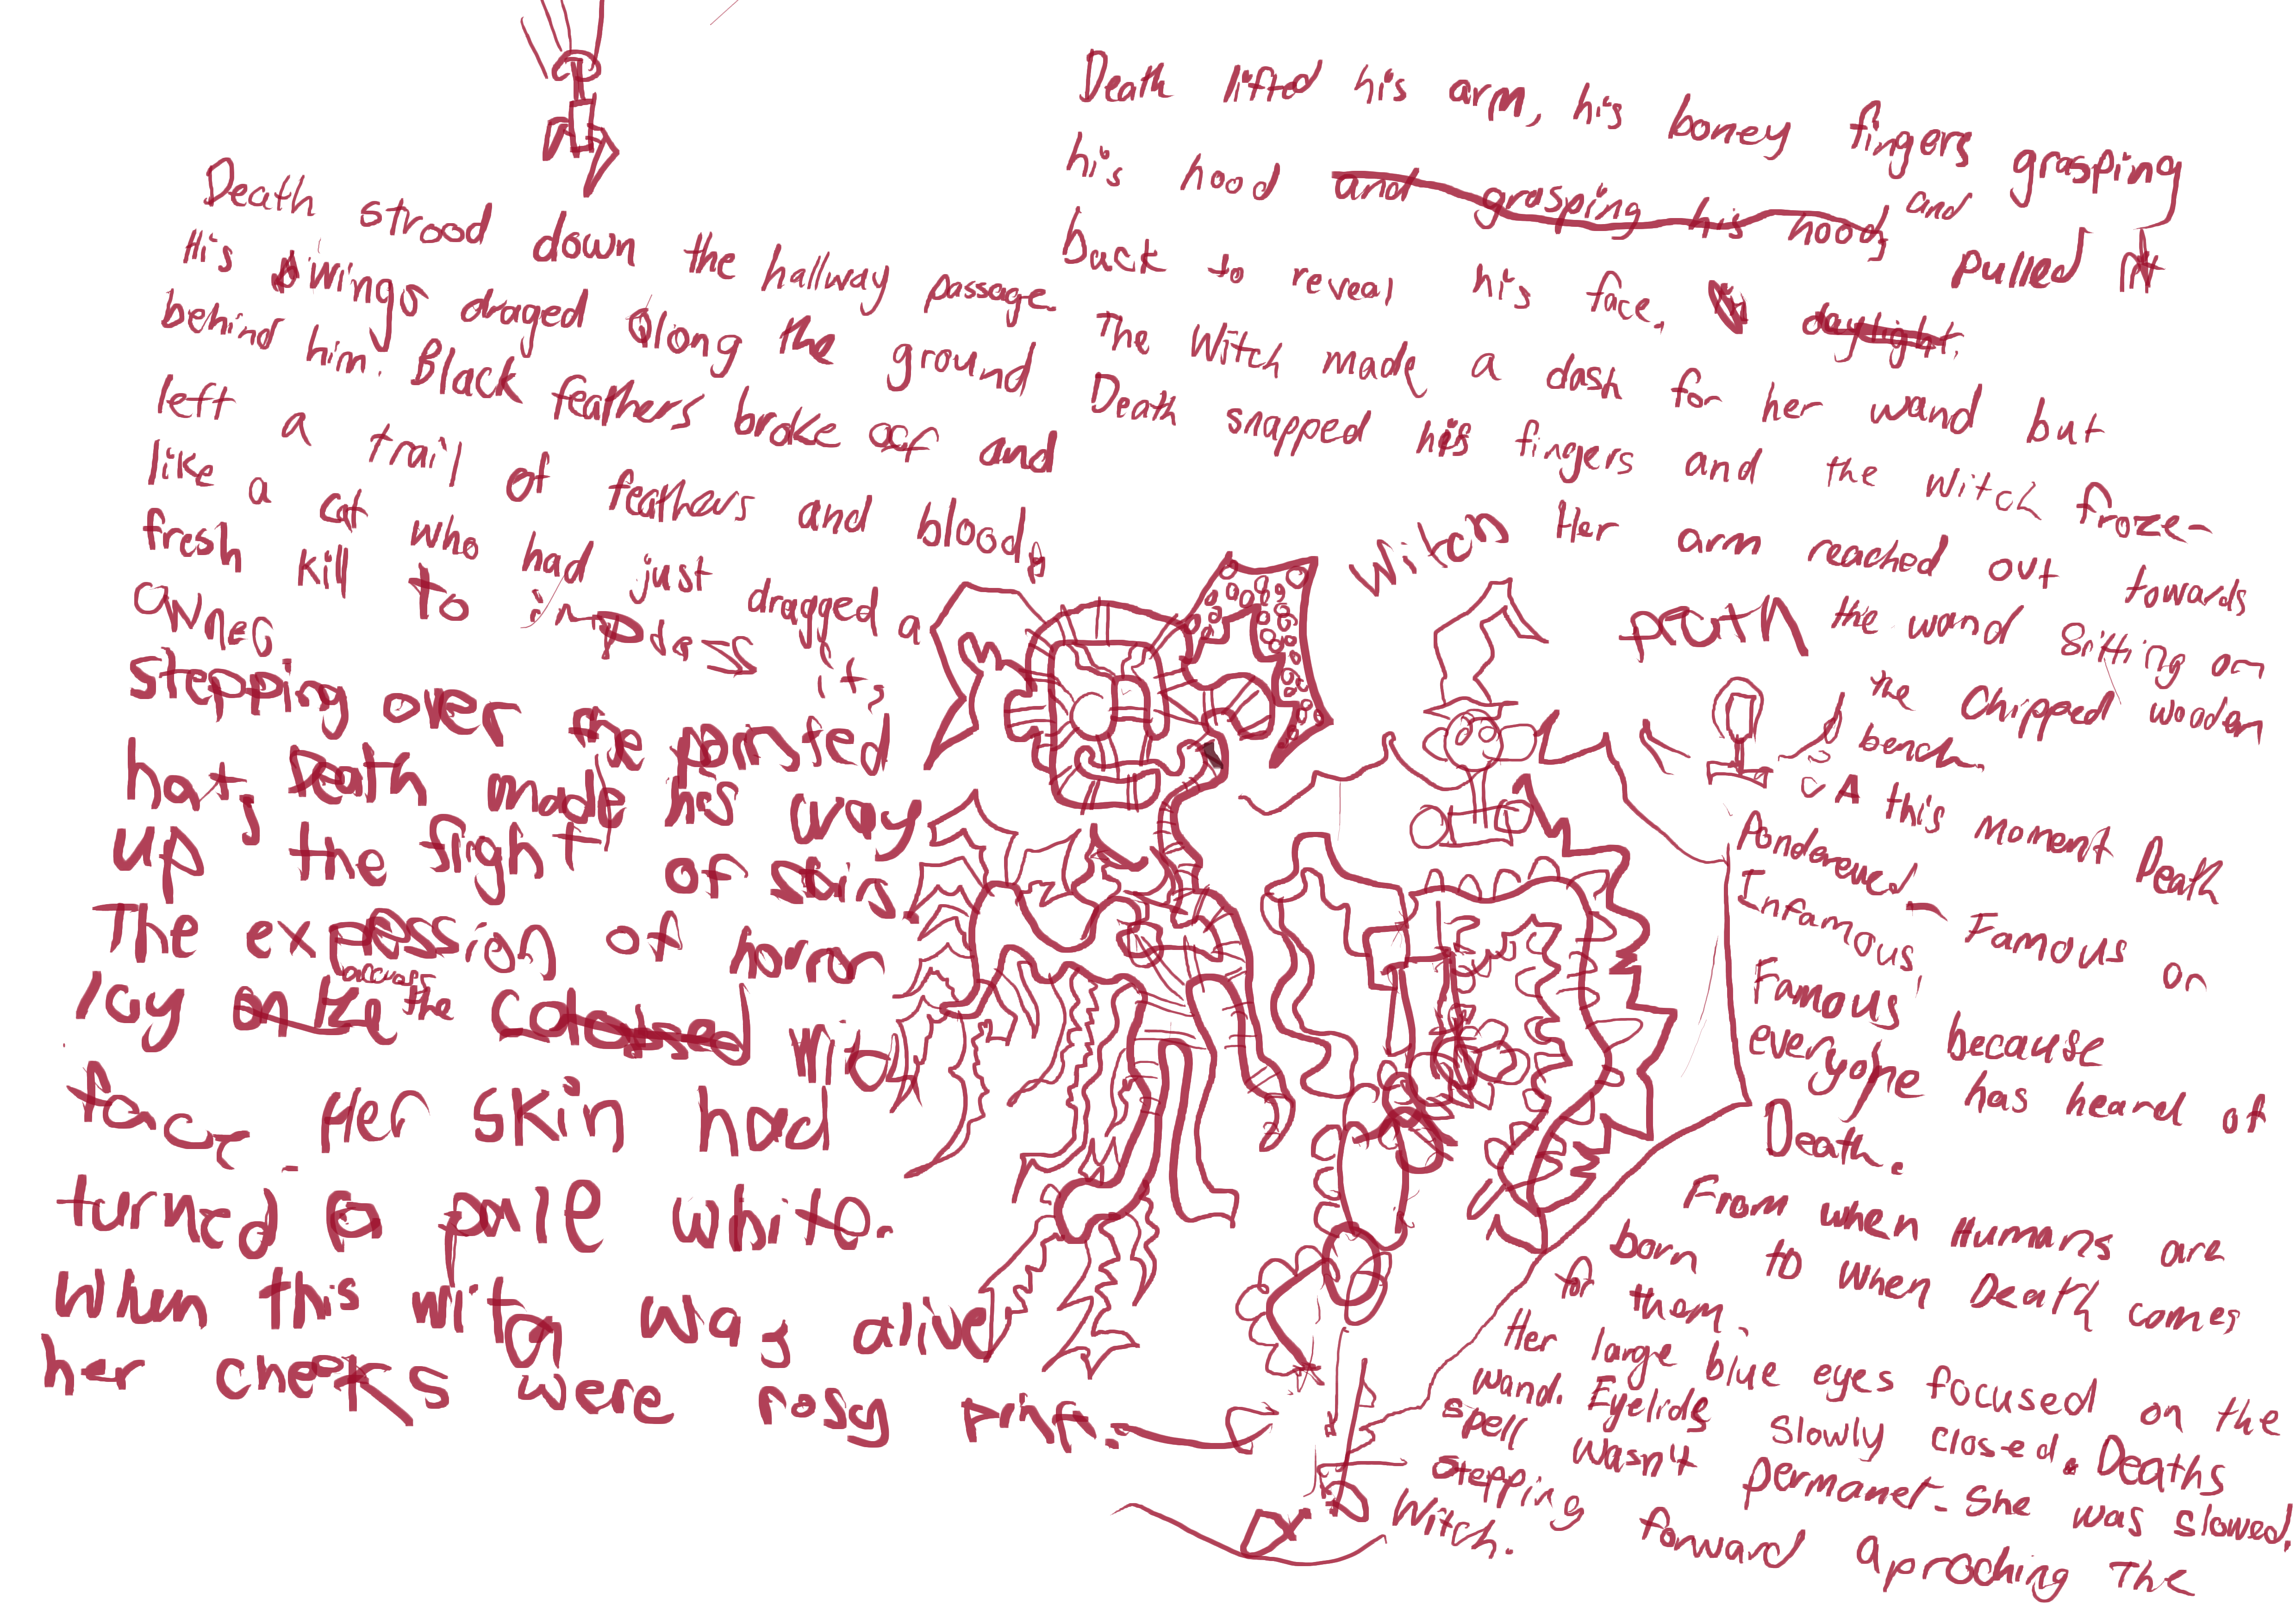 Death strood down the hallway passage.
His wings draged along the ground
behind him. Black feathers broke off and
left a trail of feathers and blood,
like a cat who had just dragged a
fresh kill to impress it,
owner
stepping over the pointed
hat, Death made his way
up the flight of stairs.
The expression of horror
lay across the witch
face. Her skin had
turned a pale white.
When this witch was alive
her cheeks were rosy pink.
Death lifted his arm, his boney fingers grasping
his hood and grasping his hood, and pulled it
back to reveal his face. daylight.
The Witch made a dash for her wand but
Death snapped his fingers and the witch froze-
Her arm reached out towards
the wand sitting on
the Chipped wooden
bench.
A this moment Death
Pondered - Famous or
Infamous,
Famous because
everyone has heard of
Death.
From when Humans are
born to when Death comes
for them.
Her large blue eyes focused on the
wand. Eyelids slowly closed. Deaths
spell wasn't permanet- She was slowed.
stepping forward aproching The
Witch.
Witch